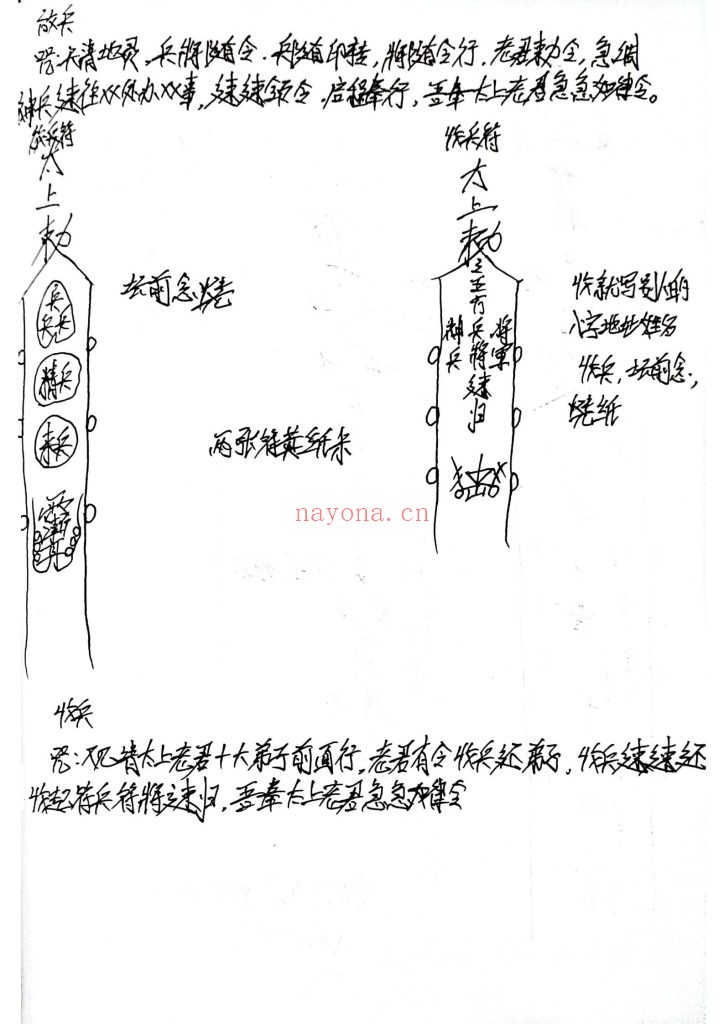 放兵
咒:天清地灵,兵将随令.兵随印转,将随令行,老君敕令,急调
神兵速往XX处办XX事,速速领令.启程奉行,吾奉太上老君急急如律令。
放兵符
太上敕
兵兵兵
精兵
来兵
坛前念烧
两张符黄纸朱
收兵符
太上敕
神兵
兵将速归
将军
收就写别人的
八字地址姓名
收兵,坛前念,
烧纸
nayona.cn
收兵
咒:太上老君十大弟子前面行,老君有令收兵还弟子,收兵速速还
收起符兵符将速归,吾奉太上老君急急如律令